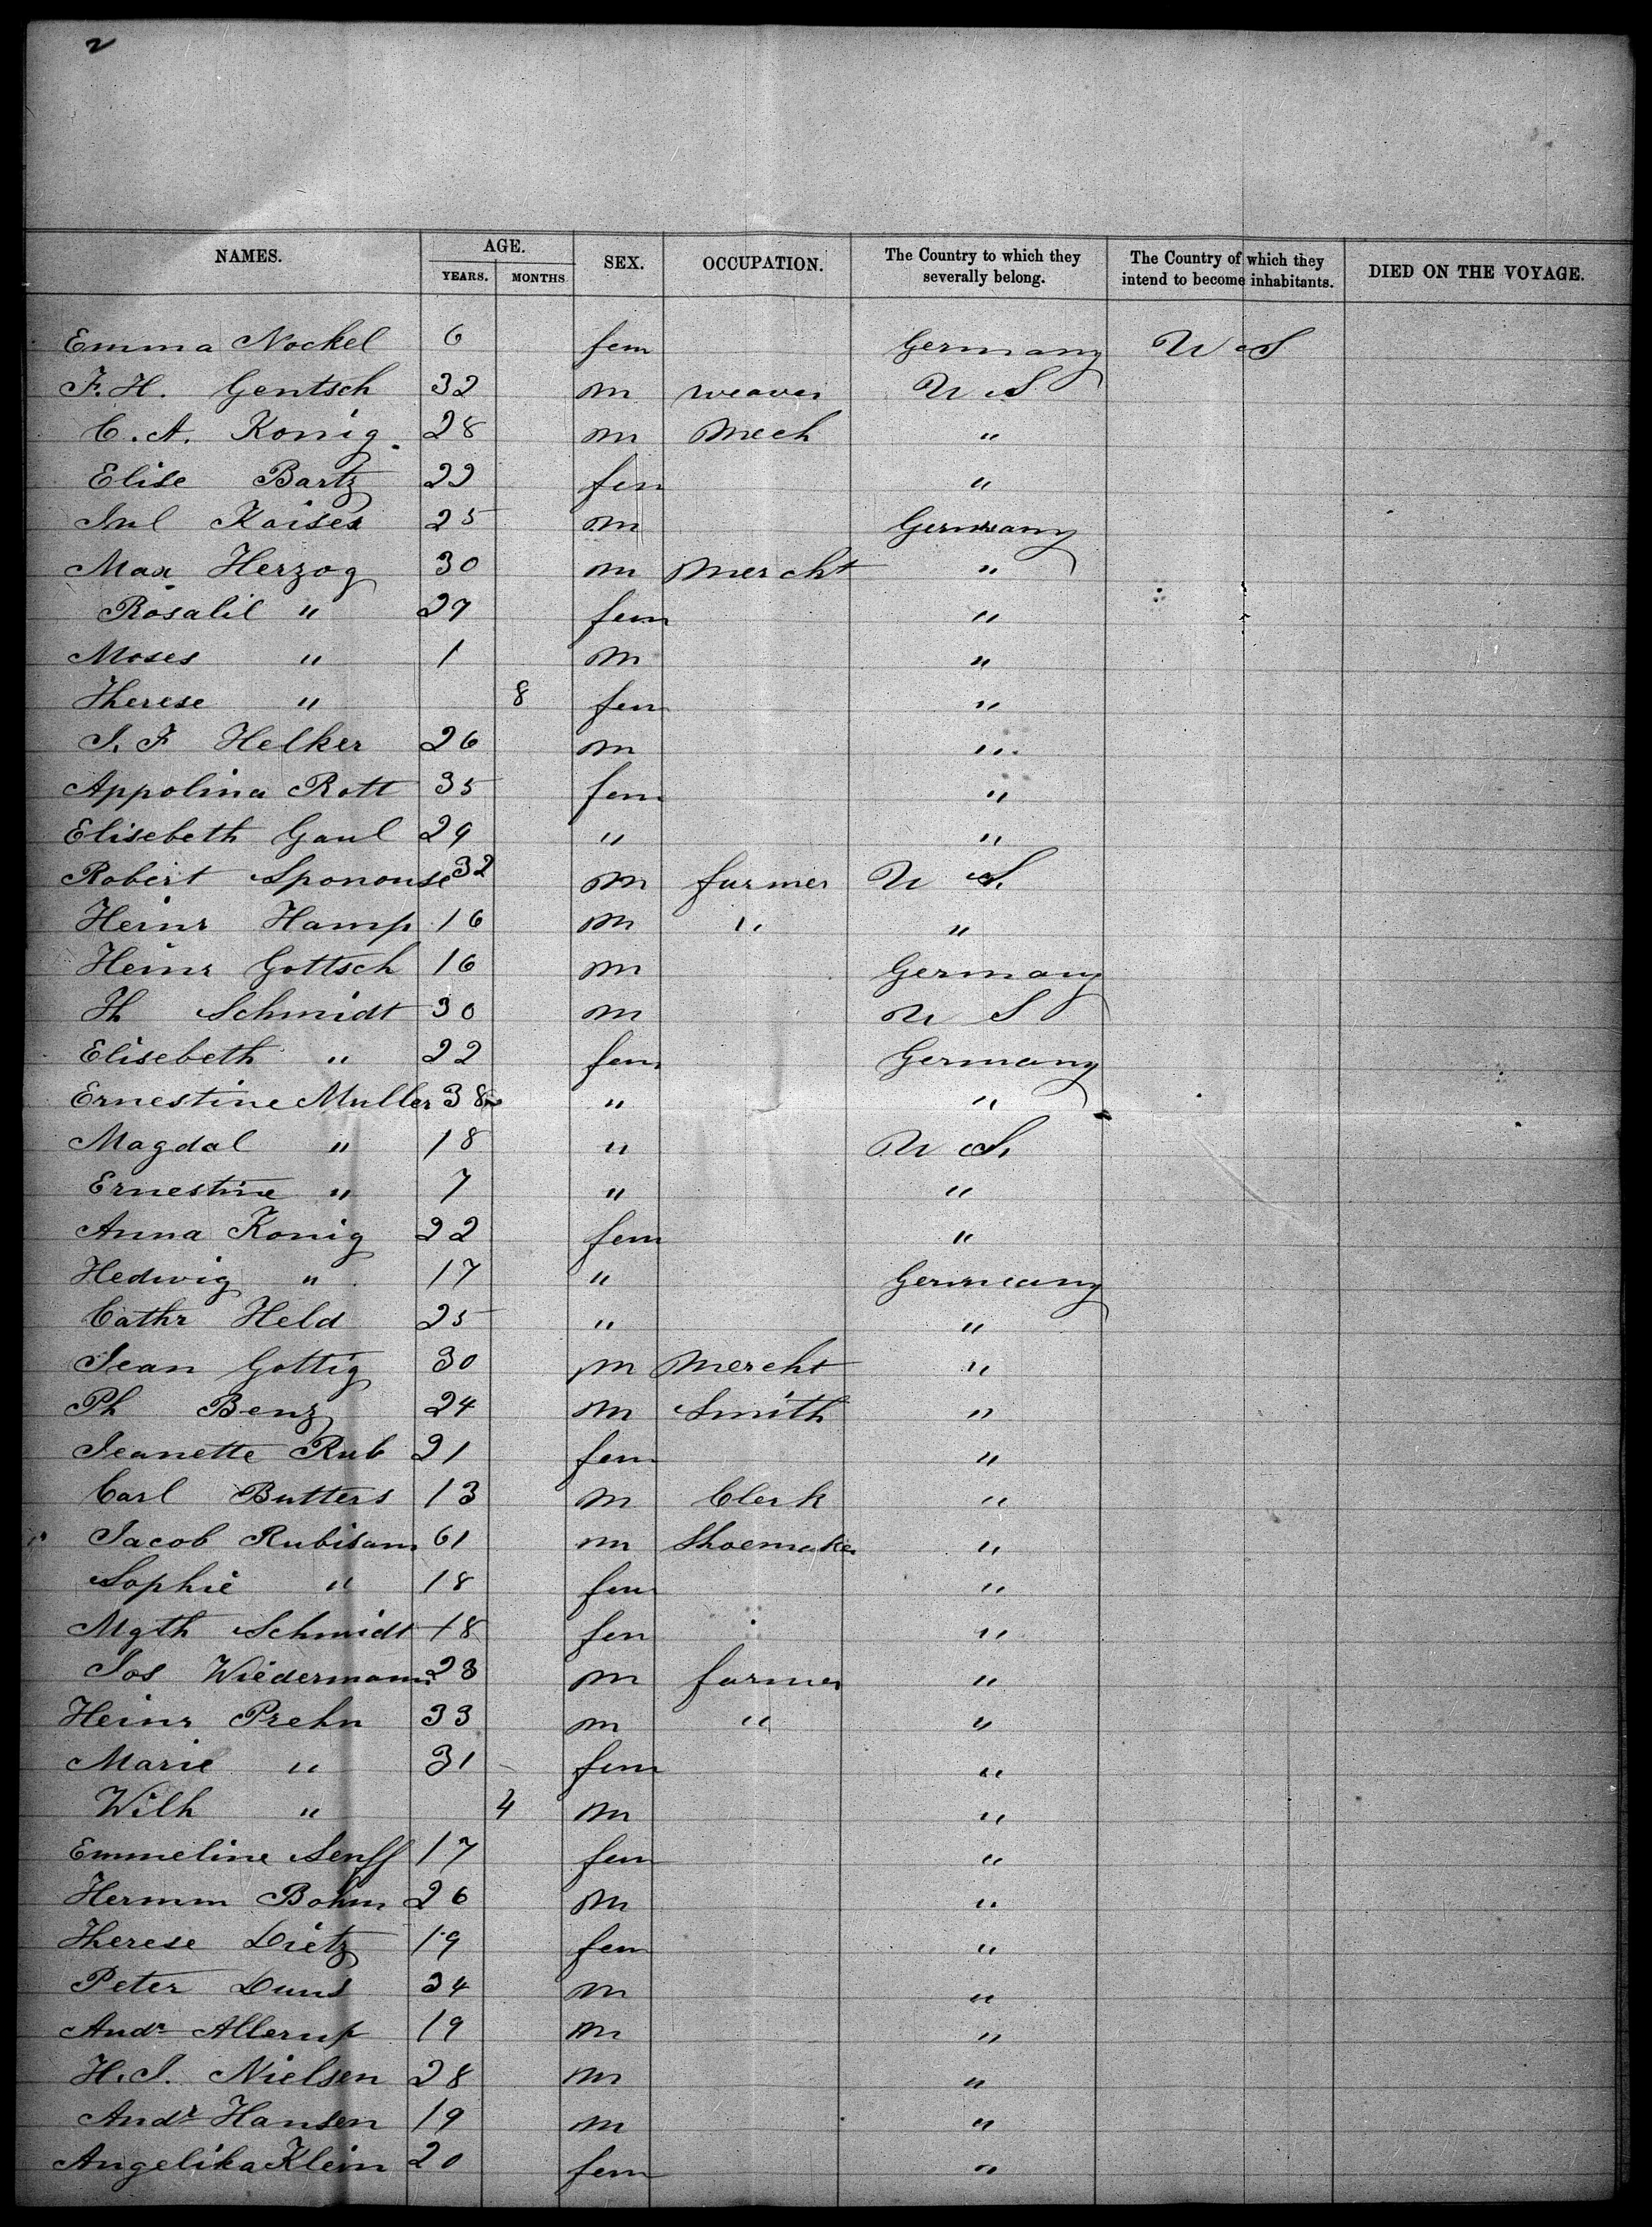 2
NAMES. AGE. YEARS. MONTHS SEX. OCCUPATION. The Country to which they severally belong. The Country of which they intend to become inhabitants. DIED ON THE VOYAGE.
Emma Nockel 6 fem Germany U S
F. H. Gentsch 32 m weaver U S
C. A. Konig 28 m Mech "
Elise Bartz 22 fem "
Jul Kaiser 25 m Germany
Max Herzog 30 m Mercht "
Rosalil " 27 fem "
Moses " 1 m "
Therese " 8 fem "
J. F Helker 26 m "
Appolina Rott 35 fem "
Elisebeth Gaul 29 " "
Robert Sponouse 32 m farmer U S.
Heinr Hamp 16 m " "
Heinr Gottsch 16 m Germany
H Schmidt 30 m U S
Elisebeth " 22 fem Germany
Ernestine Muller 38 " "
Magdal " 18 " U S.
Ernestine " 7 " "
Anna Konig 22 fem "
Hedwig " 17 " Germany
Cathr Held 25 " "
Jean Gottig 30 m Mercht "
Ph Benz 24 m Smith "
Jeanette Rub 21 fem "
Carl Butters 13 m Clerk "
Jacob Rubisam 61 m Shoemaker "
Sophie " 18 fem "
Mgth Schmidt 18 fem "
Jos Wiedermann 23 m farmer "
Heinr Prehn 33 m " "
Marie " 31 fem "
Wilh " 4 m "
Emmeline Senff 17 fem "
Hermm Bohm 26 m "
Therese Dietz 19 fem "
Peter Duus 34 m "
Andr Allerup 19 m "
H. J. Nielsen 28 m "
Andr Hansen 19 m "
Angelika Klein 20 fem "